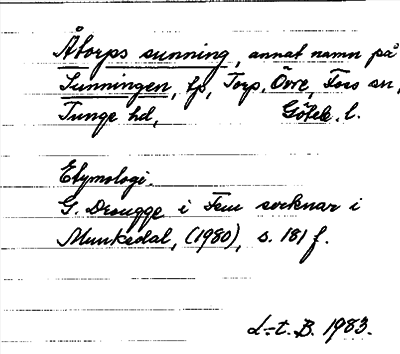 Åtorps sunning, annat namn på
Sunningen, tp, Torp, Övre, Foss sn,
Tunge hd, Göteb. l.
Etymologi.
G. Drougge i Fem socknar i
Munkedal, (1980), s. 181 f.
L-t. B. 1983.